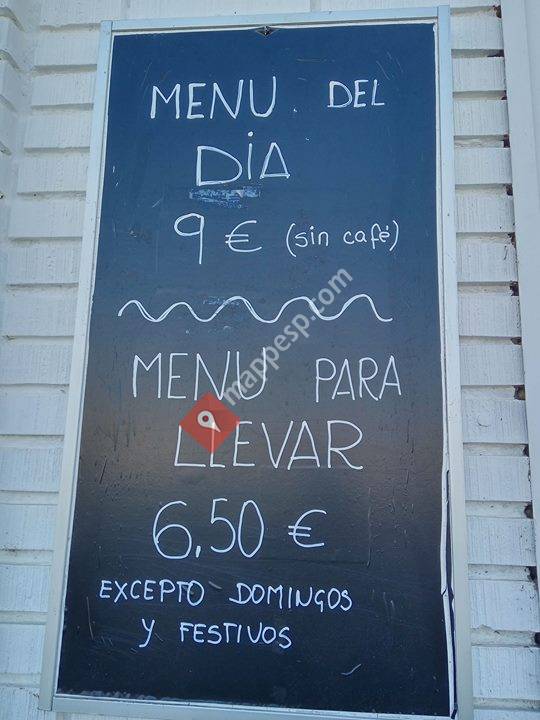 MENU DEL
DIA
9 € (sin café)
mappesp.com
MENU PARA
LLEVAR
6,50 €
EXCEPTO DOMINGOS
Y FESTIVOS